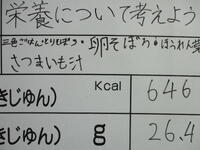 栄養について考えよう
三色ごはんとりそぼろ・卵そぼろ・ほうれん草
さつまいも汁
Kcal
きじゅん) 646
きじゅん) g 26.4